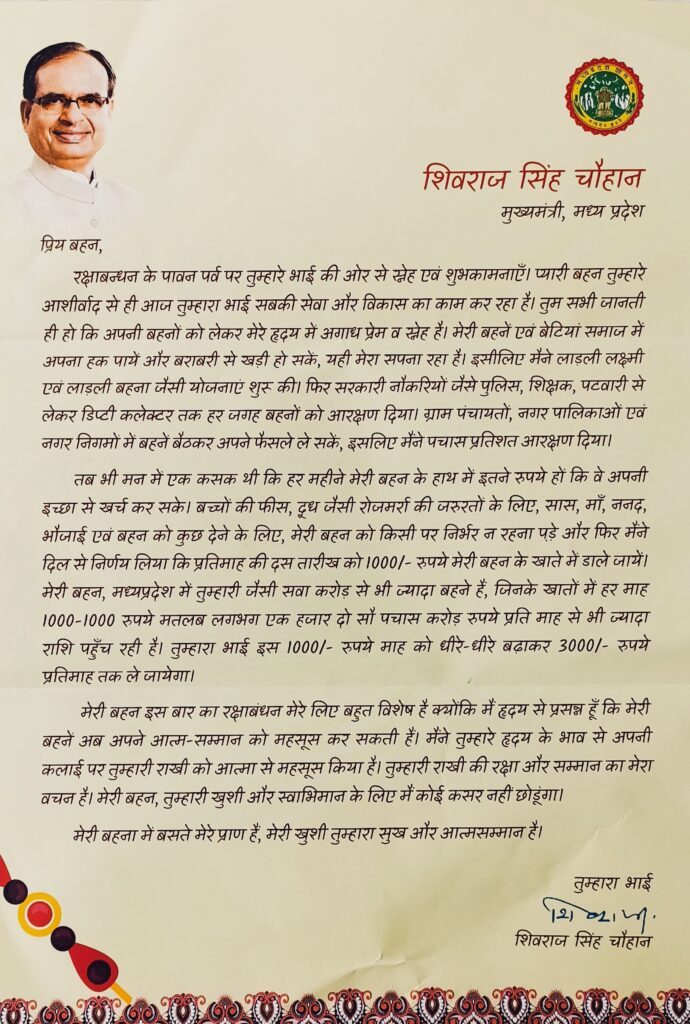 शिवराज सिंह चौहान
मुख्यमंत्री, मध्य प्रदेश
प्रिय बहन,
रक्षाबन्धन के पावन पर्व पर तुम्हारे भाई की ओर से स्नेह एवं शुभकामनाएँ। प्यारी बहन तुम्हारे
आशीर्वाद से ही आज तुम्हारा भाई सबकी सेवा और विकास का काम कर रहा है। तुम सभी जानती
ही हो कि अपनी बहनों को लेकर मेरे हृदय में अगाध प्रेम व स्नेह है। मेरी बहनें एवं बेटियां समाज में
अपना हक पायें और बराबरी से खड़ी हो सकें, यही मेरा सपना रहा है। इसीलिए मैने लाड़ली लक्ष्मी
एवं लाड़ली बहना जैसी योजनाएं शुरू की। फिर सरकारी नौकरियों जैसे पुलिस, शिक्षक, पटवारी से
लेकर डिप्टी कलेक्टर तक हर जगह बहनों को आरक्षण दिया। ग्राम पंचायतों, नगर पालिकाओं एवं
नगर निगमों में बहनें बैठकर अपने फैसले ले सकें, इसलिए मैंने पचास प्रतिशत आरक्षण दिया।
तब भी मन में एक कसक थी कि हर महीने मेरी बहन के हाथ में इतने रुपये हों कि वे अपनी
इच्छा से खर्च कर सके। बच्चों की फीस, दूध जैसी रोजमर्रा की जरुरतों के लिए, सास, माँ, ननद,
भौजाई एवं बहन को कुछ देने के लिए, मेरी बहन को किसी पर निर्भर न रहना पड़े और फिर मैंने
दिल से निर्णय लिया कि प्रतिमाह की दस तारीख को 1000/- रुपये मेरी बहन के खाते में डाले जायें।
मेरी बहन, मध्यप्रदेश में तुम्हारी जैसी सवा करोड़ से भी ज्यादा बहने हैं, जिनके खातों में हर माह
1000-1000 रुपये मतलब लगभग एक हजार दो सौ पचास करोड़ रुपये प्रति माह से भी ज्यादा
राशि पहुँच रही है। तुम्हारा भाई इस 1000/- रुपये माह को धीरे-धीरे बढ़ाकर 3000/- रुपये
प्रतिमाह तक ले जायेगा।
मेरी बहन इस बार का रक्षाबंधन मेरे लिए बहुत विशेष है क्योंकि मै हृदय से प्रसन्न हूँ कि मेरी
बहनें अब अपने आत्म-सम्मान को महसूस कर सकती हैं। मैने तुम्हारे हृदय के भाव से अपनी
कलाई पर तुम्हारी राखी को आत्मा से महसूस किया है। तुम्हारी राखी की रक्षा और सम्मान का मेरा
वचन है। मेरी बहन, तुम्हारी खुशी और स्वाभिमान के लिए मैं कोई कसर नहीं छोडूंगा।
मेरी बहना में बसते मेरे प्राण हैं, मेरी खुशी तुम्हारा सुख और आत्मसम्मान है।
तुम्हारा भाई
शिवराज
शिवराज सिंह चौहान